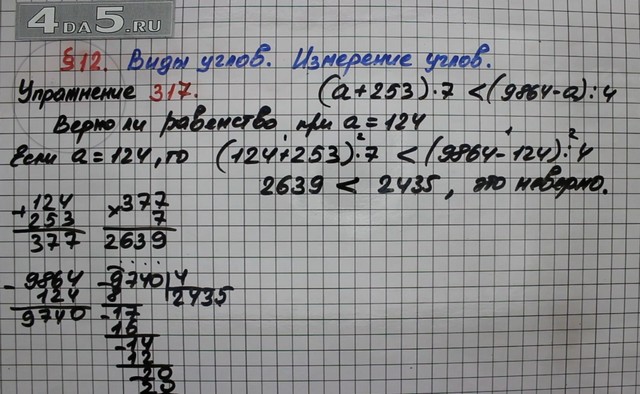 4DA5.RU
§12. Виды углов. Измерение углов.
Упражнение 317. (a+253)·7 <(9864-a):4
Верно ли равенство при a=124
Если a=124, то (124+253)·7 < (9864-124):4
1 2 1 2
2639 < 2435, это неверно.
+124
253
377
×377
7
2639
-9864
124
9740
-9740 4
8 2435
-17
16
-14
12
-20
20